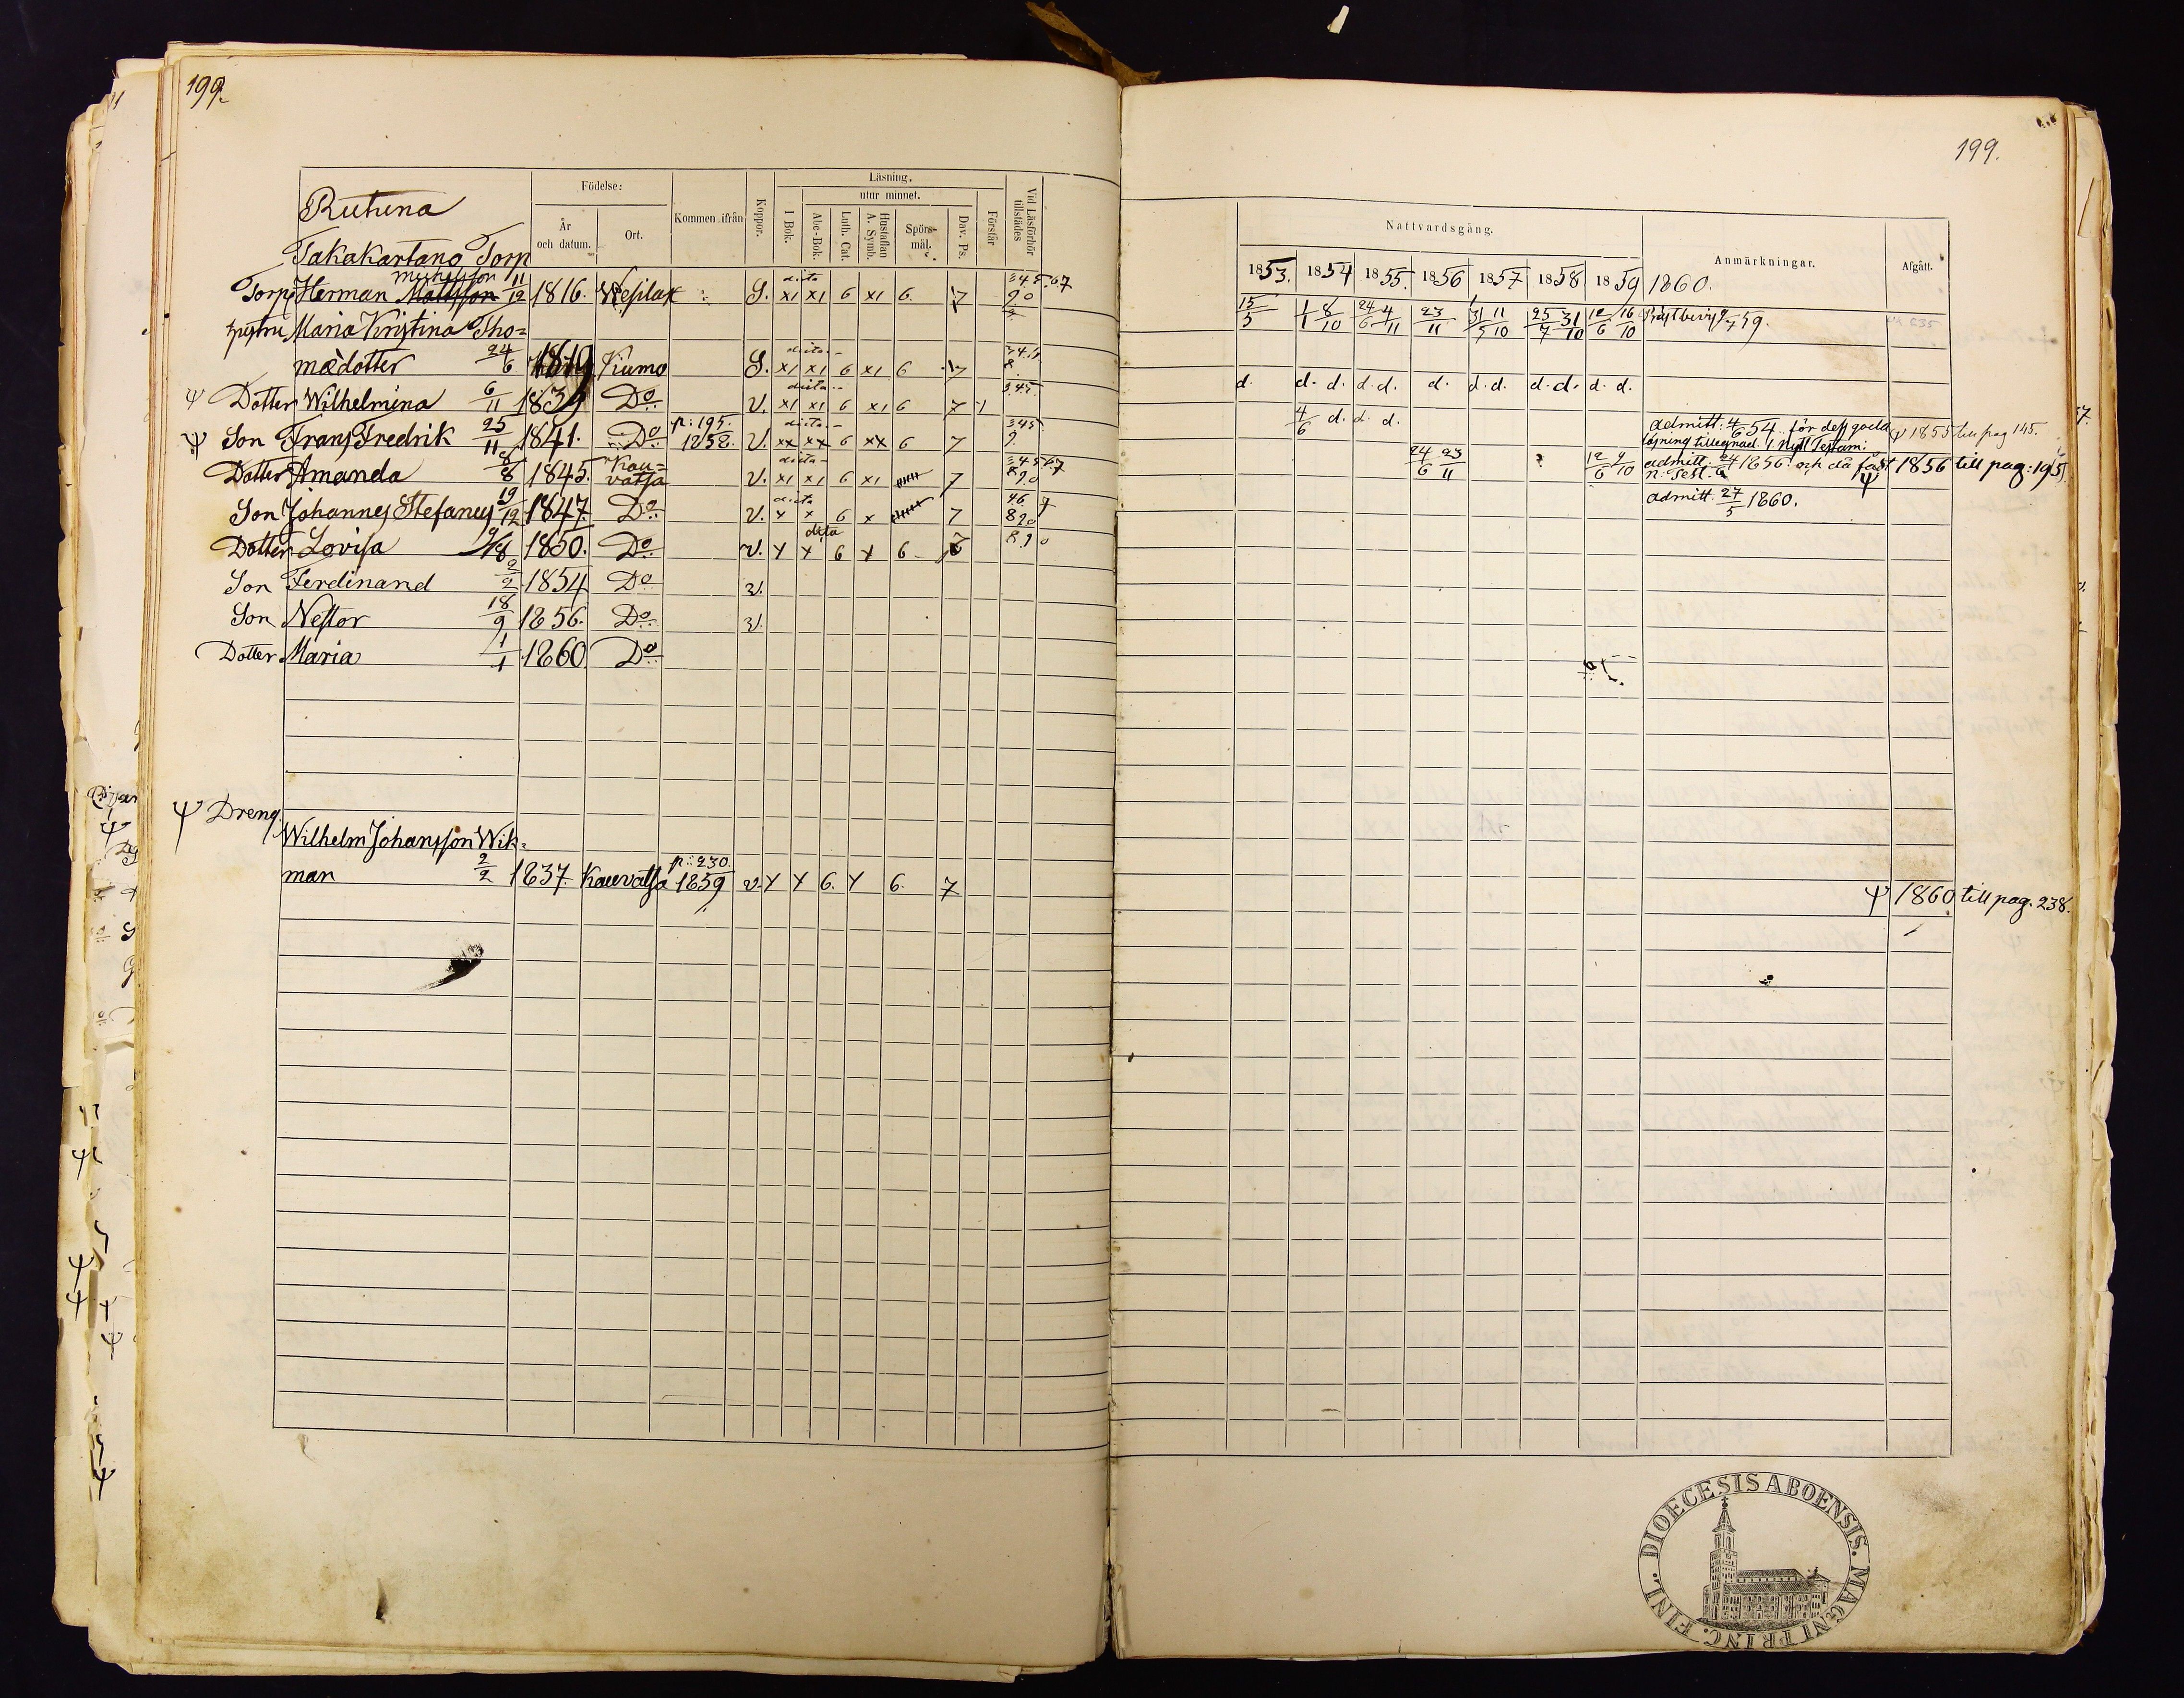 199.
Födelse:
Läsning.
utur minnet.
År och datum.
Ort.
Kommen ifrån
Koppor.
I Bok.
Abc-Bok.
Luth. Cat.
Hustaflan A. Symb.
Spörs-mål.
Dav. Ps.
Förstår
Vid Läsförhör tillstädes
Takakartano Torp
Torp. Herman Mattsson Michelsson 11/12 1816. Wesilax S. dito x1 x1 6 x1 6. 7 345.67 90
Maria Kristina Tho=
mædotter 24/6 1819 Kiumo S. dito x1 x1 6 x1 6 7 8
Ψ Dotter Wilhelmina 6/11 1839 Do V. dito x1 x1 6 x1 6 7 345.
Ψ Son Frans Fredrik 25/11 1841. Do p: 195. 1858. V. dito xx xx 6 xx 6 7 345 9.
Dotter Amanda 8/8 1845. Kau=vatsa V. dito x1 x1 6 x1 7 34567 890
Son Johannes Stefanus 19/12 1847. Do V. dito x x 6 x 7 46 9 890
Dotter Lovisa 1850. Do V. dito x x 6 x 6 890
Son Ferdinand 2/2 1854 Do v.
Son Nestor 18/9 1856. Do v.
Dotter Maria 1/1 1860. Do
Ψ Dreng
Wilhelm Johansson Wik=
man 2/2 1837. Kauvatsa p: 230. 1859 v. x x 6. x 6. 7
199.
Nattvardsgång.
Anmärkningar.
Afgått.
1853. 1854 1855. 1856 1857 1858 1859 1860.
15/5 1/1 8/10 24/6 4/11 23/11 31/5 11/10 25/7 31/10 12/6 16/10 Prestbevis 9/7 59.
d. d. d. d. d. d. d. d. d. d. d. d.
4/6 d. d. d. admitt. 4/6 54. för dess goda läsning tillegnad 1 Nytt Testam: Ψ 1855 till pag 145.
24/6 23/11 12/6 9/10 admitt. 24/6 1856. och då fått n. Test. Ψ 1856 till pag: 195
admitt. 27/5 1860.
Ψ 1860 till pag. 238.
DIOECESIS ABOENSIS. MAGNI PRINC. FINL.